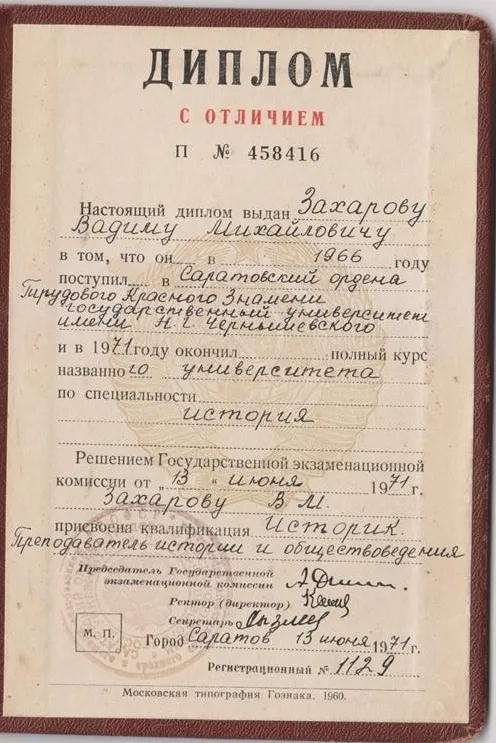 ДИПЛОМ
С ОТЛИЧИЕМ
П № 458416
Настоящий диплом выдан Захарову
Вадиму Михайловичу
в том, что он в 1966 году
поступил в Саратовский ордена
Трудового Красного Знамени
государственный университет
имени Н.Г. Чернышевского
и в 1971 году окончил полный курс
названного университета
по специальности
история
Решением Государственной экзаменационной
комиссии от „13“ июня 1971 г.
Захарову В М.
присвоена квалификация Историк.
Преподаватель истории и обществоведения
Председатель Государственной
экзаменационной комиссии
Ректор (директор)
Секретарь
М. П.
Город Саратов 13 июня 1971 г.
Регистрационный № 1129
Московская типография Гознака. 1960.